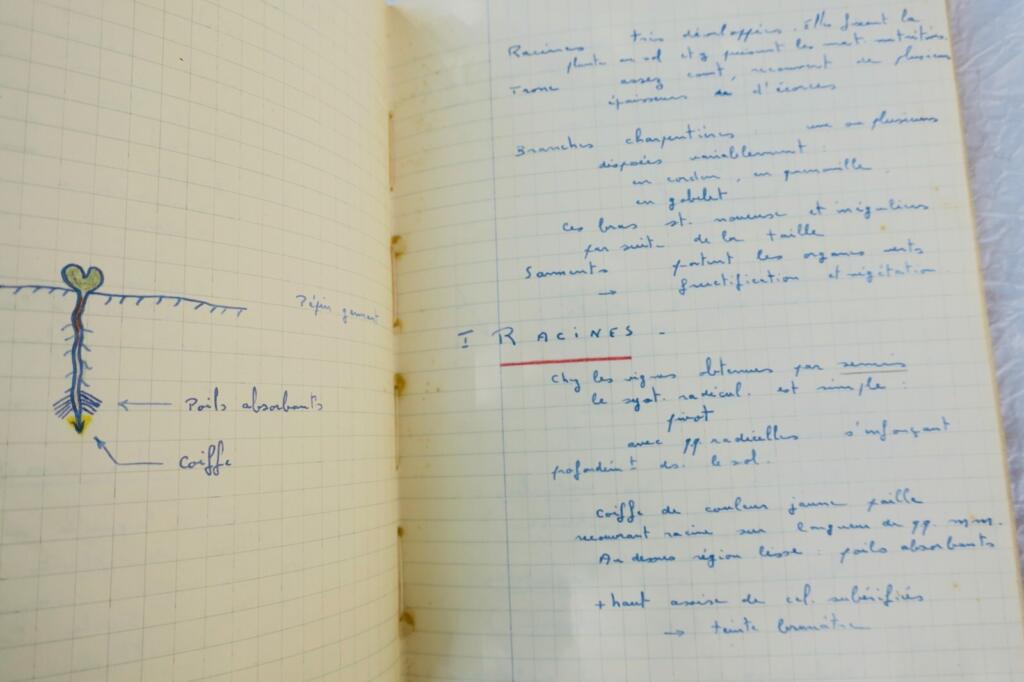 Pépin germant
Poils absorbants
Coiffe
Racines très développées. Elles fixent la
plante au sol et y puisent les mat. nutritives
Tronc assez court, recouvert de plusieurs
épaisseurs de d'écorces
Branches charpentières une ou plusieurs
disposées variablement :
en cordon, en quenouille,
en gobelet
Ces bras st. noueux et irréguliers
par suite de la taille
Sarments portent les organes verts
→ fructification et végétation
I RACINES -
Chez les vignes obtenues par semis
le syst. radicul. est simple :
pivot
avec qq. radicelles s'enfonçant
profondémt ds. le sol.
Coiffe de couleur jaune paille
recouvrant racine sur longueur de qq. mm.
Au dessus région lisse : poils absorbants
+ haut assise de cel. subérifiées
→ teinte brunâtre